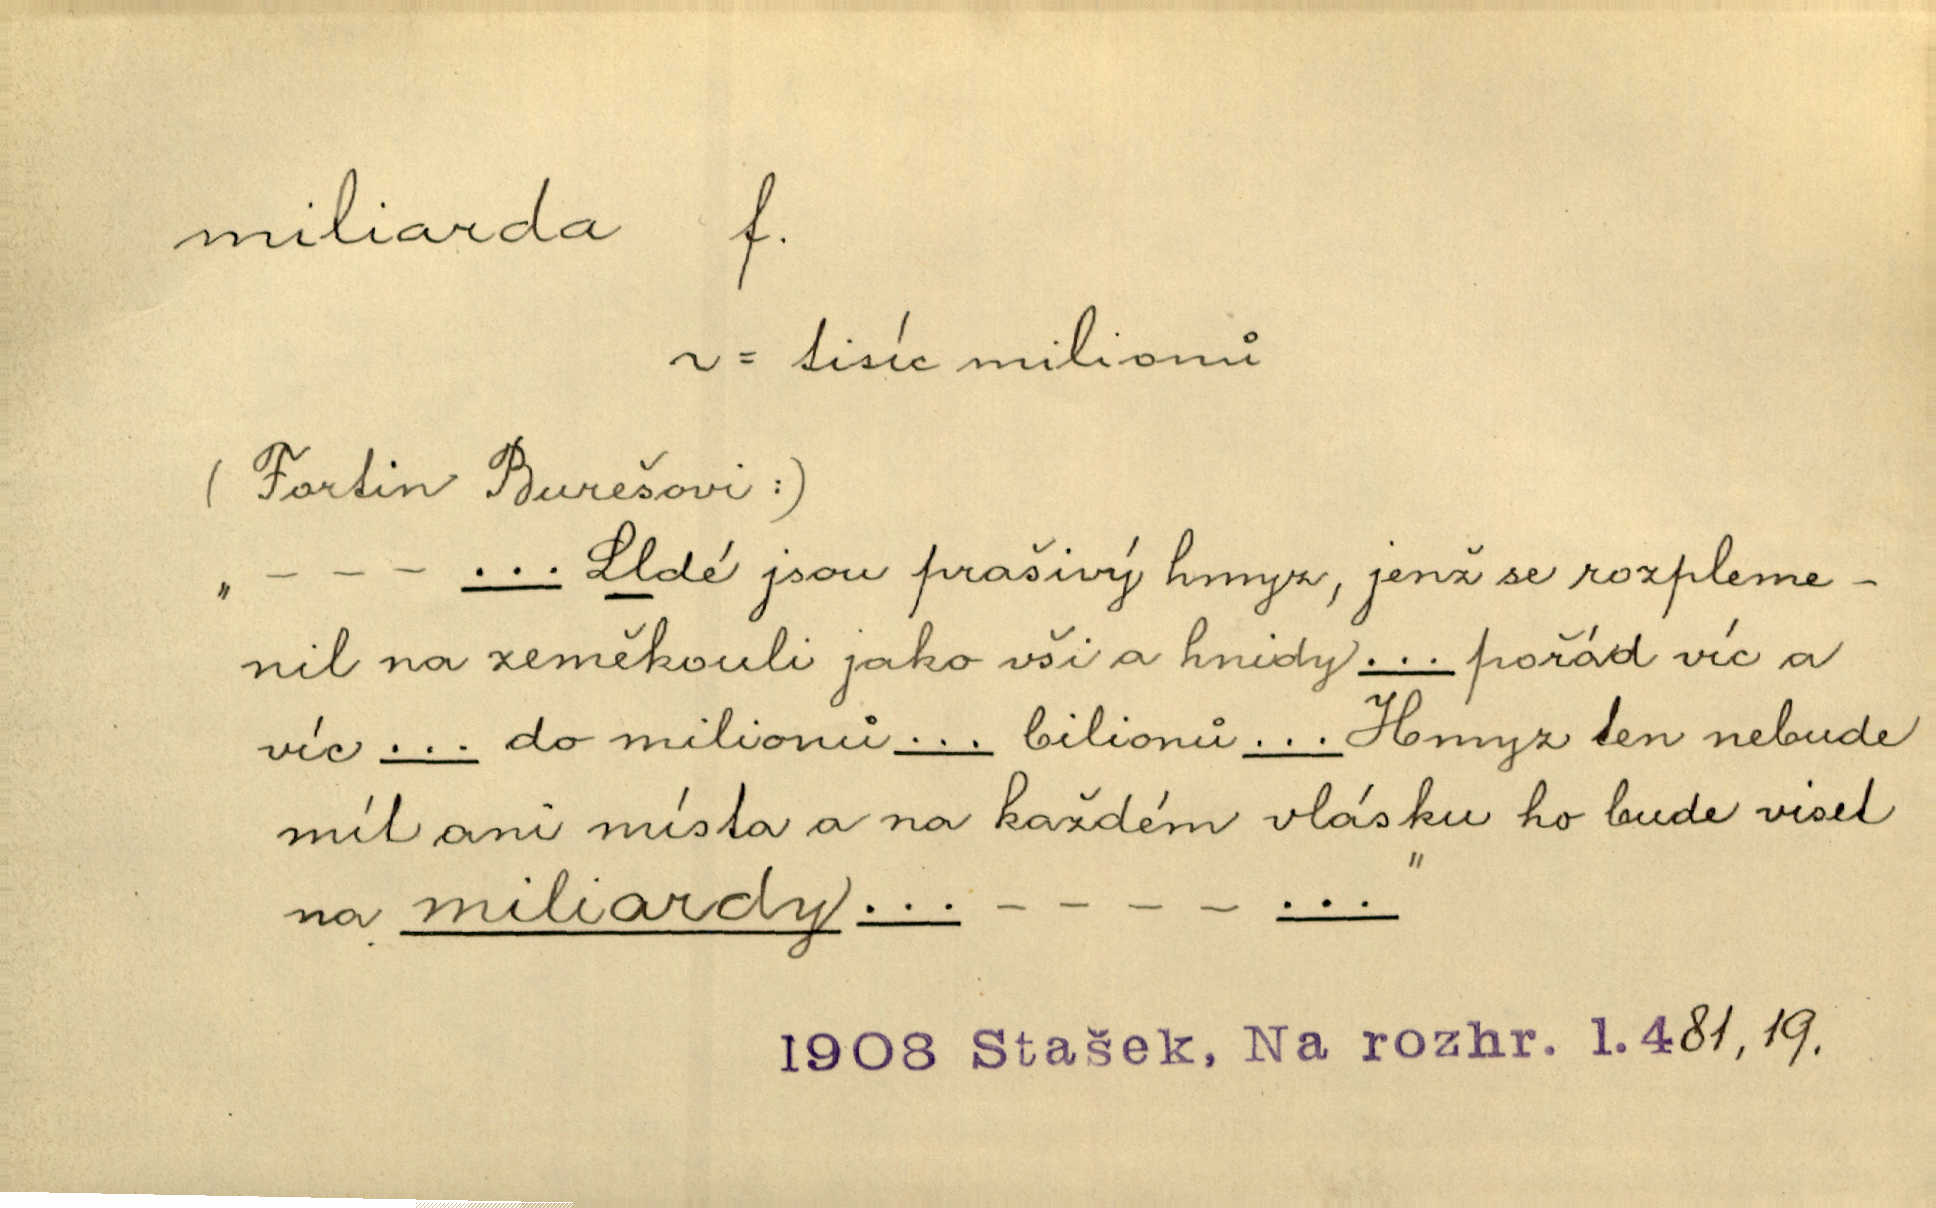 miliarda f.
~ = tisíc milionů
( Fortin Burešovi :)
„ – – – ... Lldé jsou prašivý hmyz, jenž se rozpleme-
nil na zeměkouli jako vši a hnidy ... pořád víc a
víc ... do milionů ... bilionů ... Hmyz ten nebude
mít ani místa a na každém vlásku ho bude viset
na miliardy ... – – – – ..."
1908 Stašek, Na rozhr. 1.481, 19.